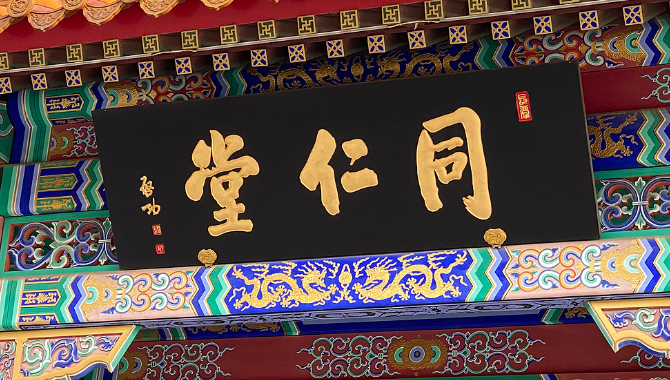 同仁堂
启功